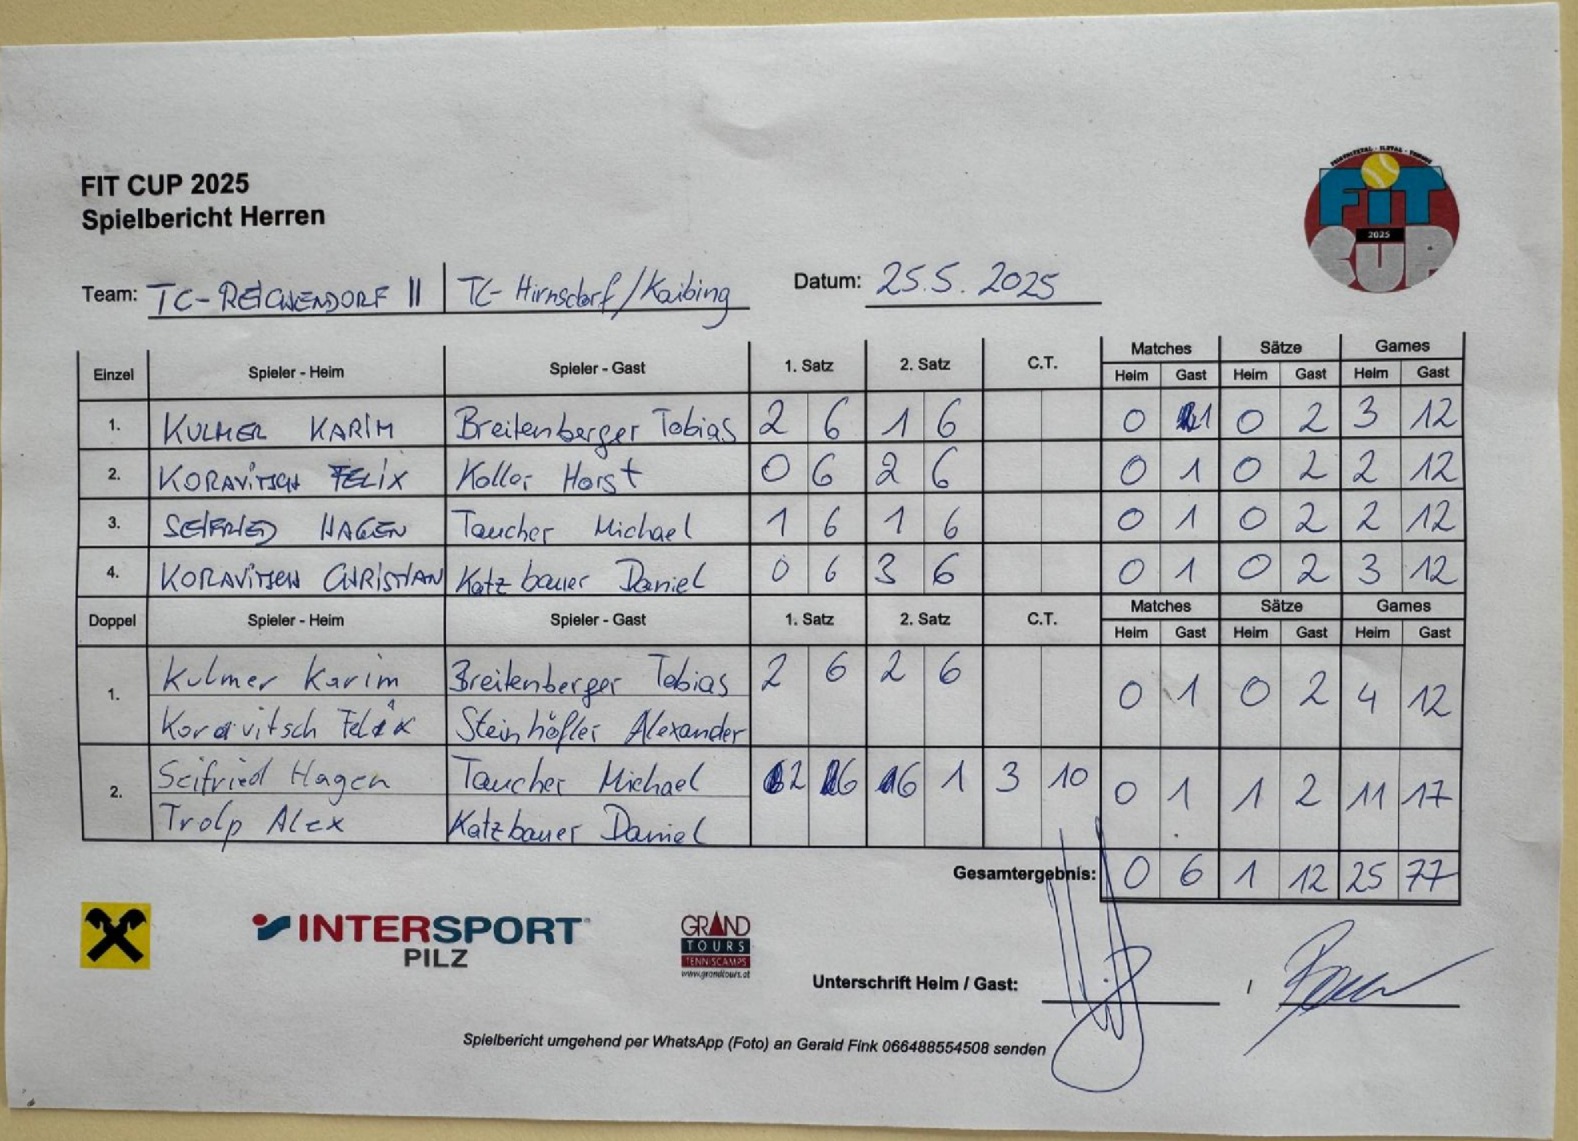 FIT CUP 2025
Spielbericht Herren
FiT
2025
CUP
Team: TC-REICHENDORF II | TC-Hirnsdorf/Kaibing Datum: 25.5.2025
Einzel Spieler - Heim Spieler - Gast 1. Satz 2. Satz C.T. Matches Sätze Games
Heim Gast Heim Gast Heim Gast
1. KULMER KARIM Breitenberger Tobias 2 6 1 6 0 1 0 2 3 12
2. KORAVITSCH FELIX Koller Horst 0 6 2 6 0 1 0 2 2 12
3. SEIFRIED HAGEN Taucher Michael 1 6 1 6 0 1 0 2 2 12
4. KORAVITSCH CHRISTIAN Katzbauer Daniel 0 6 3 6 0 1 0 2 3 12
Doppel Spieler - Heim Spieler - Gast 1. Satz 2. Satz C.T. Matches Sätze Games
Heim Gast Heim Gast Heim Gast
1. Kulmer Karim Breitenberger Tobias 2 6 2 6 0 1 0 2 4 12
Koravitsch Felix Steinhöfler Alexander
2. Seifried Hagen Taucher Michael 2 6 6 1 3 10 0 1 1 2 11 17
Trolp Alex Katzbauer Daniel
Gesamtergebnis: 0 6 1 12 25 77
INTERSPORT
PILZ
GRAND
TOURS
TENNISCAMPS
www.grandtours.at
Unterschrift Heim / Gast: /
Spielbericht umgehend per WhatsApp (Foto) an Gerald Fink 066488554508 senden